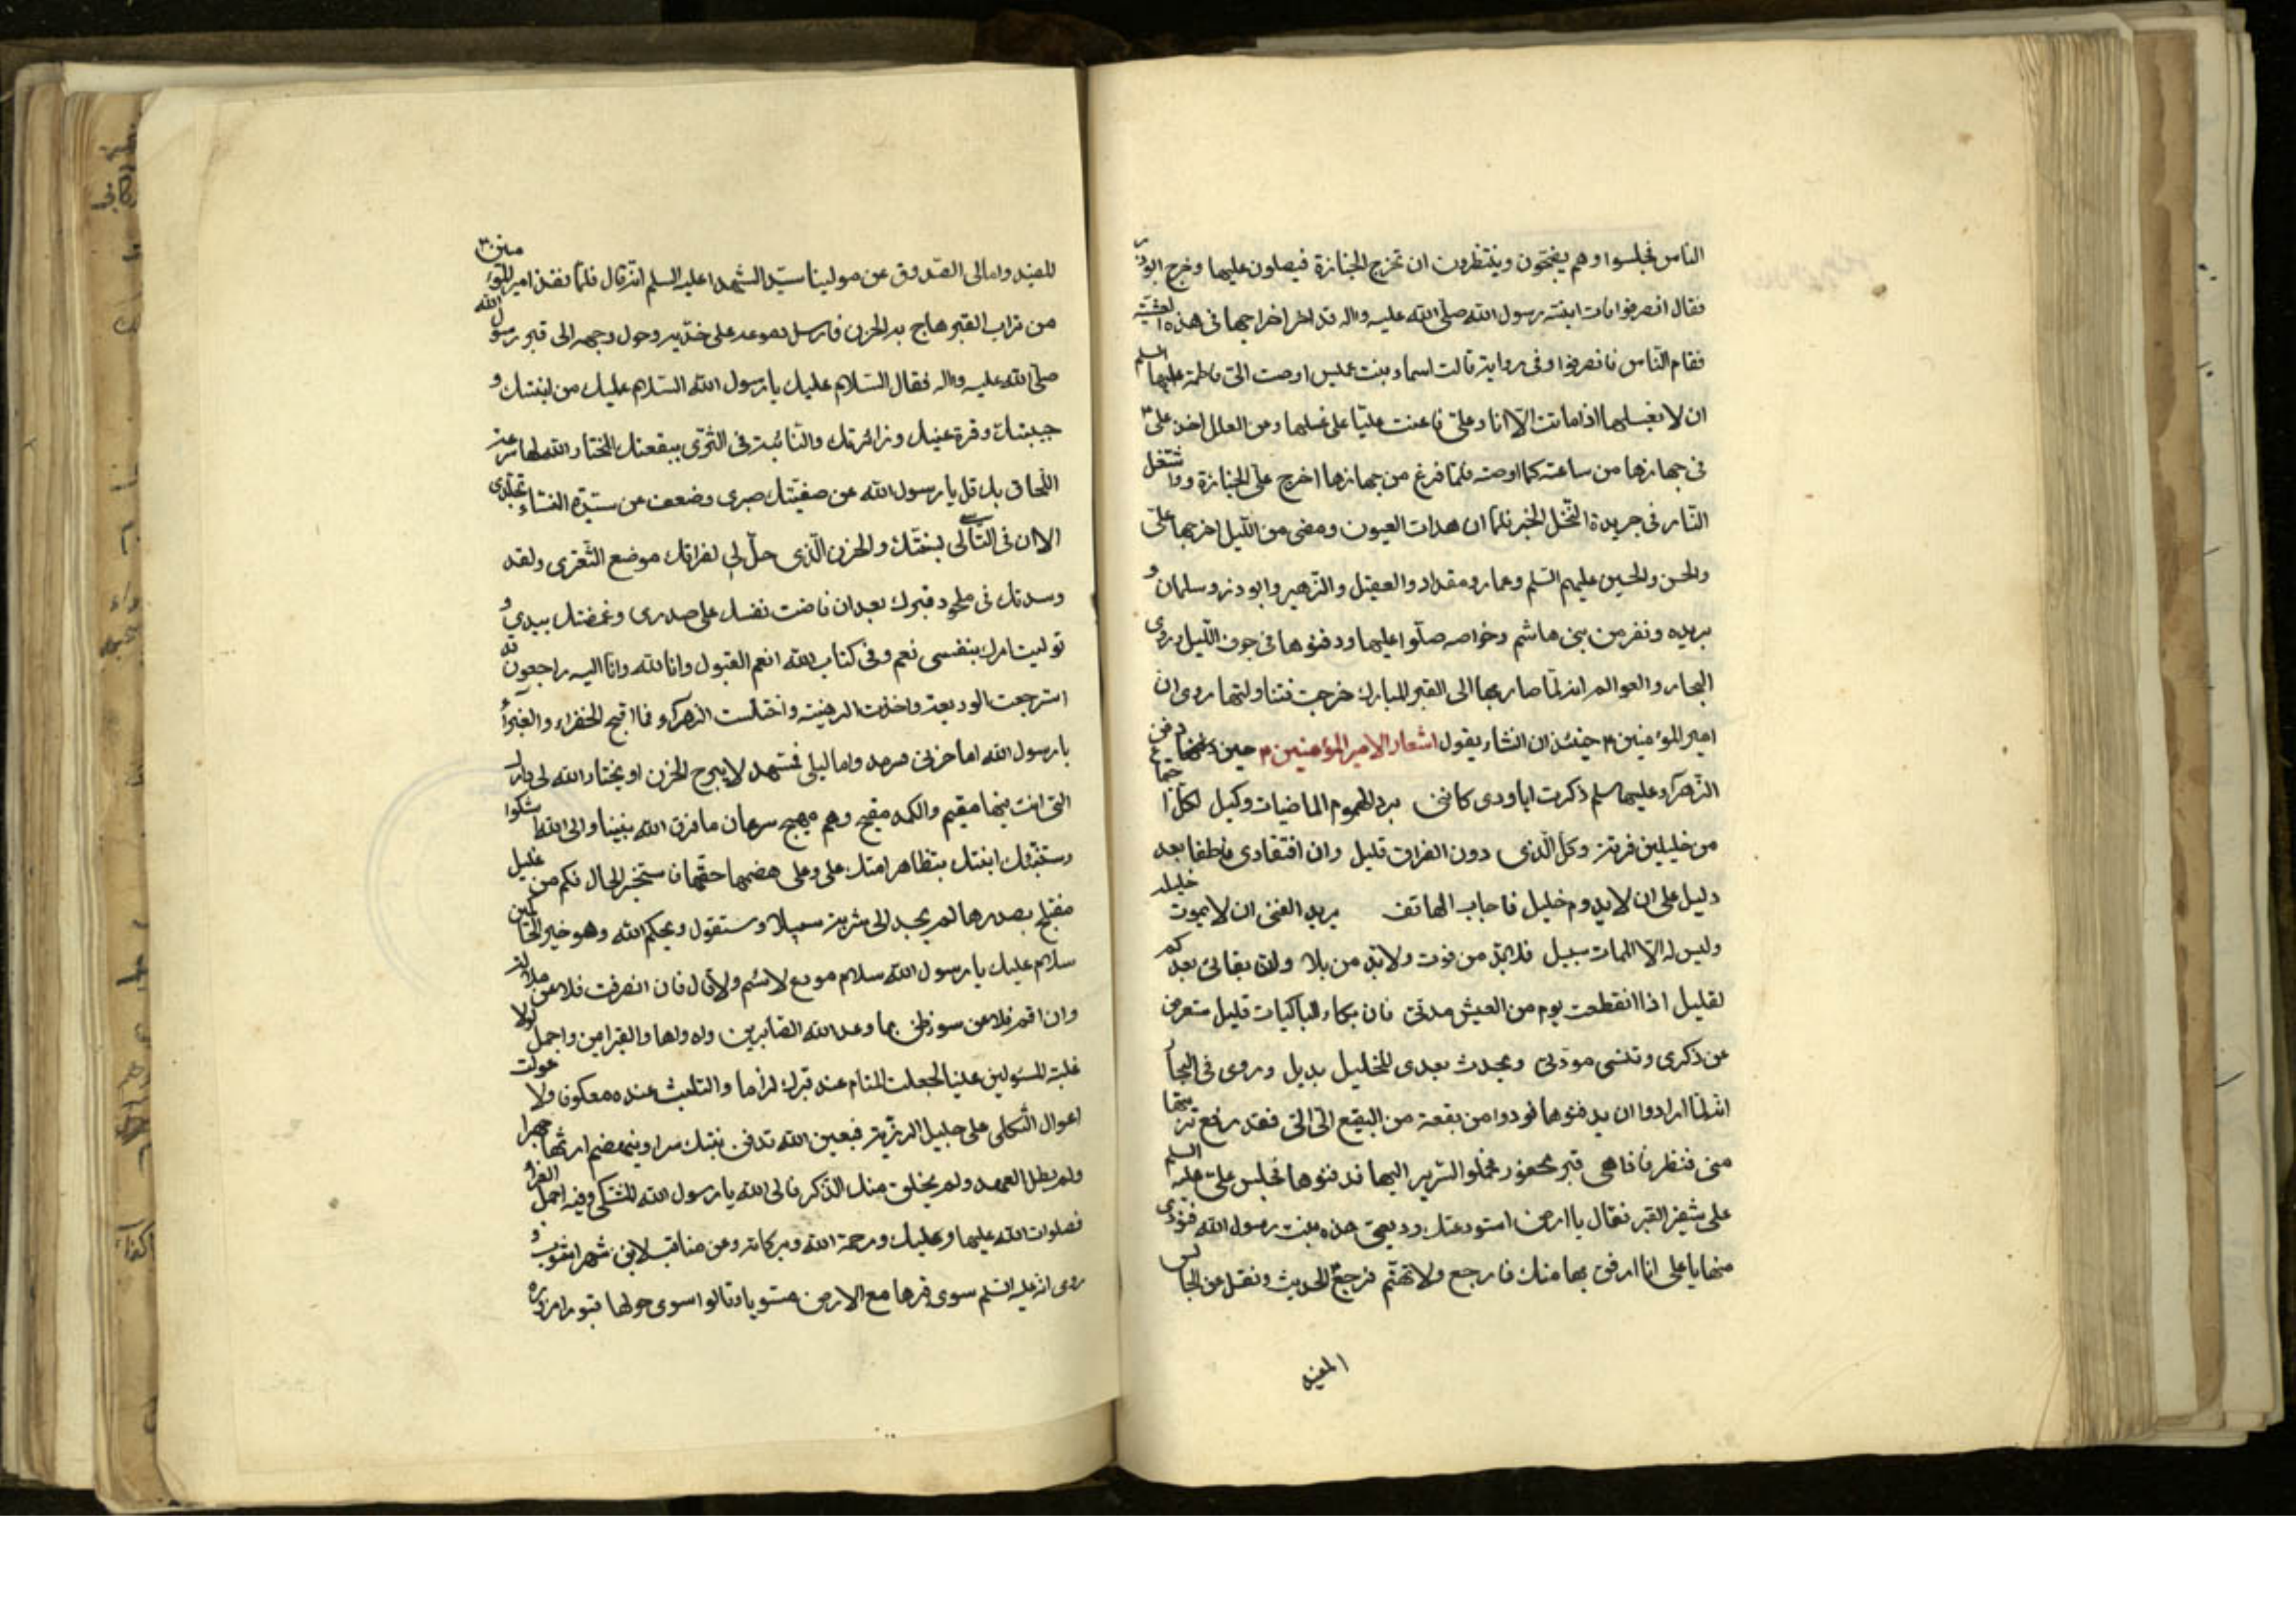 الناس فجلسوا وهم يضجّون وينتظرون ان تخرج الجنازة فيصلون عليها وخرج ابوذر
فقال انصرفوا فان ابنة رسول الله صلّى الله عليه واله قد اخر اخراجها فى هذه العشية
فقام النّاس فانصرفوا وفى رواية قالت اسماء بنت عميس اوصت الىّ فاطمة عليها السلم
ان لا يغسلها اذا ماتت الّا انا وعلىّ فاعنت عليّا على غسلها وعن العلل اخذ علىّ
فى جهازها من ساعته كما اوصته فلمّا فرغ من جهازها اخرج علىّ الجنازة واشتعل
النّار فى جريدة النّخل الخبر فلمّا ان هدات العيون ومضى من اللّيل اخرجها علىّ
والحسن والحسين عليهم السّلم وعمار ومقداد والعقيل والزّهير وابوذر وسلمان و
بريده ونفر من بنى هاشم وخواصه صلّوا عليها ودفنوها فى جوف اللّيل وروى
البحار والعوالم انه لمّا صار بها الى القبر المبارك خرجت فتناولتها روى ان
امير المؤمنين م حينئذ ان انشاء يقول اشعار الامير المؤمنين م حين دفن
الزّهراء عليها سلم ذكرت ابا ودى كاننى برد الهموم الماضيات وكيل لكل اجتماع
من خليلين فرقة وكل الّذى دون الفراق قليل وان افتقادى فاطما بعد
دليل على ان لا يدوم خليل فاجاب الهاتف يريد الفتى ان لا يموت خليله
وليس له الّا الممات سبيل فلا بدّ من فوت ولا بدّ من بلا وان بقائى بعدكم
لقليل اذا انقطعت يوم من العيش مدتى فان بكاء الباكيات قليل ستعرض
عن ذكرى وتنسى مودتى ويحدث بعدى للخليل بديل وروى فى البحار
انه لمّا ارادوا ان يدفنوها نودوا من بقعة من البقيع الىّ الىّ فقد رفع تربتها
منى فنظر فاذا هى قبر محفور فحملوا السّرير اليها فدفنوها فجلس علىّ عليه السلم
على شفير القبر فقال يا ارض استودعتك وديعتى هذه بنت رسول الله فنودى
منها يا على انا ارفق بها منك فارجع ولا تهتّم فرجع الحديث ونقل عن المجالس
المفيد
للمفيد وامالى الصّدوق عن مولينا سيّد الشّهدا عليه السلم انّه قال فلمّا نفض امير المؤمنين
من تراب القبر هاج به الحزن فارسل دموعه على خدّيه وحول وجهه الى قبر رسول الله
صلّى الله عليه واله فقال السّلام عليك يا رسول الله السّلام عليك من ابنتك و
حبيبتك وقرة عينك وزائرتك والثّابتة فى الثّرى ببقعتك المختار الله لها سرعة
اللّحاق بك قل يا رسول الله عن صفيّتك صبرى وضعف من سيّدة النّساء تجلّدى
الا ان فى التّأسّى لى بسنّتك والحزن الّذى حلّ بى لفراقك موضع التّعزى ولقد
وسدتك فى ملحود قبرك بعد ان فاضت نفسك على صدرى وغمضتك بيدى و
توليت امرك بنفسى نعم وفى كتاب الله انعم القبول وانا لله وانا اليه راجعون قد
استرجعت الوديعة واخذت الرهينة واختلست الزهراء فما اقبح الخضراء والغبراء
يا رسول الله اما حزنى فسرمد واما ليلى فمسهد لا يبرح الحزن او يختار الله لى دارك
التى انت فيها مقيم والكمد مقيح وهم مهيج سرعان ما فرق الله بيننا والى الله اشكوا
وستنبّئك ابنتك بتظاهر امتك على وعلى هضمها حقّها فاستخبر الحال فكم من غليل
معتلج بصدرها لم يجد الى بثه سبيلا وستقول ويحكم الله وهو خير الحاكمين
سلام عليك يا رسول الله سلام مودع لا سئم ولا قال فان انصرفت فلا عن ملالة
وان اقم فلا عن سوء ظنى بما وعد الله الصّابرين واه واها والصّبر ايمن واجمل ولولا
غلبة المستولين علينا لجعلت المقام عند قبرك لزاما والتلبث عنده معكوفا ولا عولت
اعوال الثّكلى على جليل الرزيّة فبعين الله تدفن بنتك سرا ويهتضم ارثها جهرا
ولم يطل العهد ولم يخلق منك الذّكر فالى الله يا رسول الله المشتكى وفيه اجمل العزاء
فصلوات الله عليها وعليك ورحمة الله وبركاته وعن مناقب لابن شهراشوب و
روى انّه عليه السّلم سوى قبرها مع الارض مستويا وقالوا سوى حولها قبو را مزورة